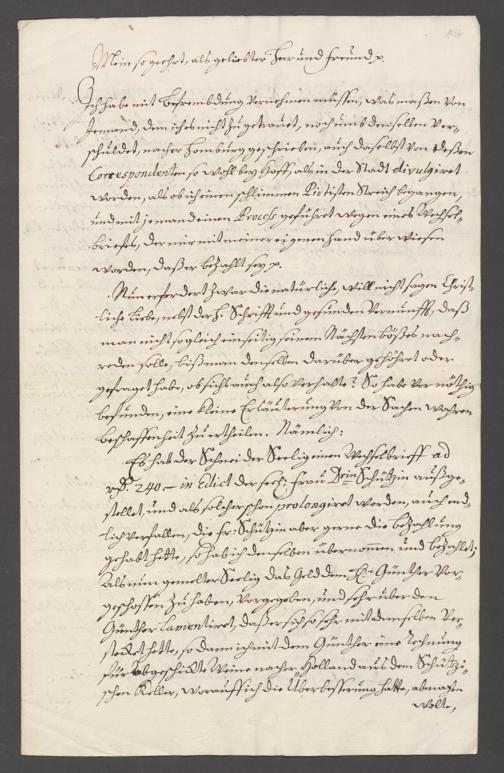 Mein so geehrt, als geliebter Herr und Freund p.
Ich habe mit Befrembdung vernehmen müssen, was maßen von
Jemand, dem ich es nicht zugetrauet, noch umb denselben ver-
schuldet, nacher Homburg geschrieben, auch daselbst von deßen
Correspondenten so wohl bey Hoff, als in der Stadt divulgiret
worden, als ob ich einen schlimmen Pietisten Streich begangen,
und mit jemand einen Process geführet wegen eines Wechsel-
brieffes, der mir mit meiner eigenen Hand überwiesen
worden, daß er bezahlt sey p.
Nun erfordert zwar die natürliche, will nicht sagen Christ-
liche Liebe, nebst der H. Schrifft und gesunden Vernunfft, daß
man nicht so gleich einseitig seinem Nächsten böses nach-
reden solle, biß man denselben darüber gehöhret oder
gefraget habe, ob sichs auch also verhalte? So habe vor nöthig
befunden, eine kleine Erläuterung von der Sachen wahren
Beschaffenheit zu ertheilen. Nämlich:
Es hat der Schneider Seelig einen Wechselbrieff ad
240 — in Edict der Frau Schützin außge-
stellet, und als solcher schon prolongiret worden, auch end-
lich verfallen, die Fr: Schützin aber gerne die bezahlung
gehabt hätte, so hab ich denselben übernommen und bezahlet;
Als nun gemelter Seelig das Geld dem H: Günther vor-
geschossen zu haben, vorgegeben, und sehr über den
Günther lamentiret, daß er sich so sehr mit demselben ver-
steckt hätte, so dann ich mit dem Günther eine Rechnung
für abgeschickte Weine nacher Holland aus dem Schützi-
schen Keller, worauff ich die Überbesserung hatte, abmachen
wolte,